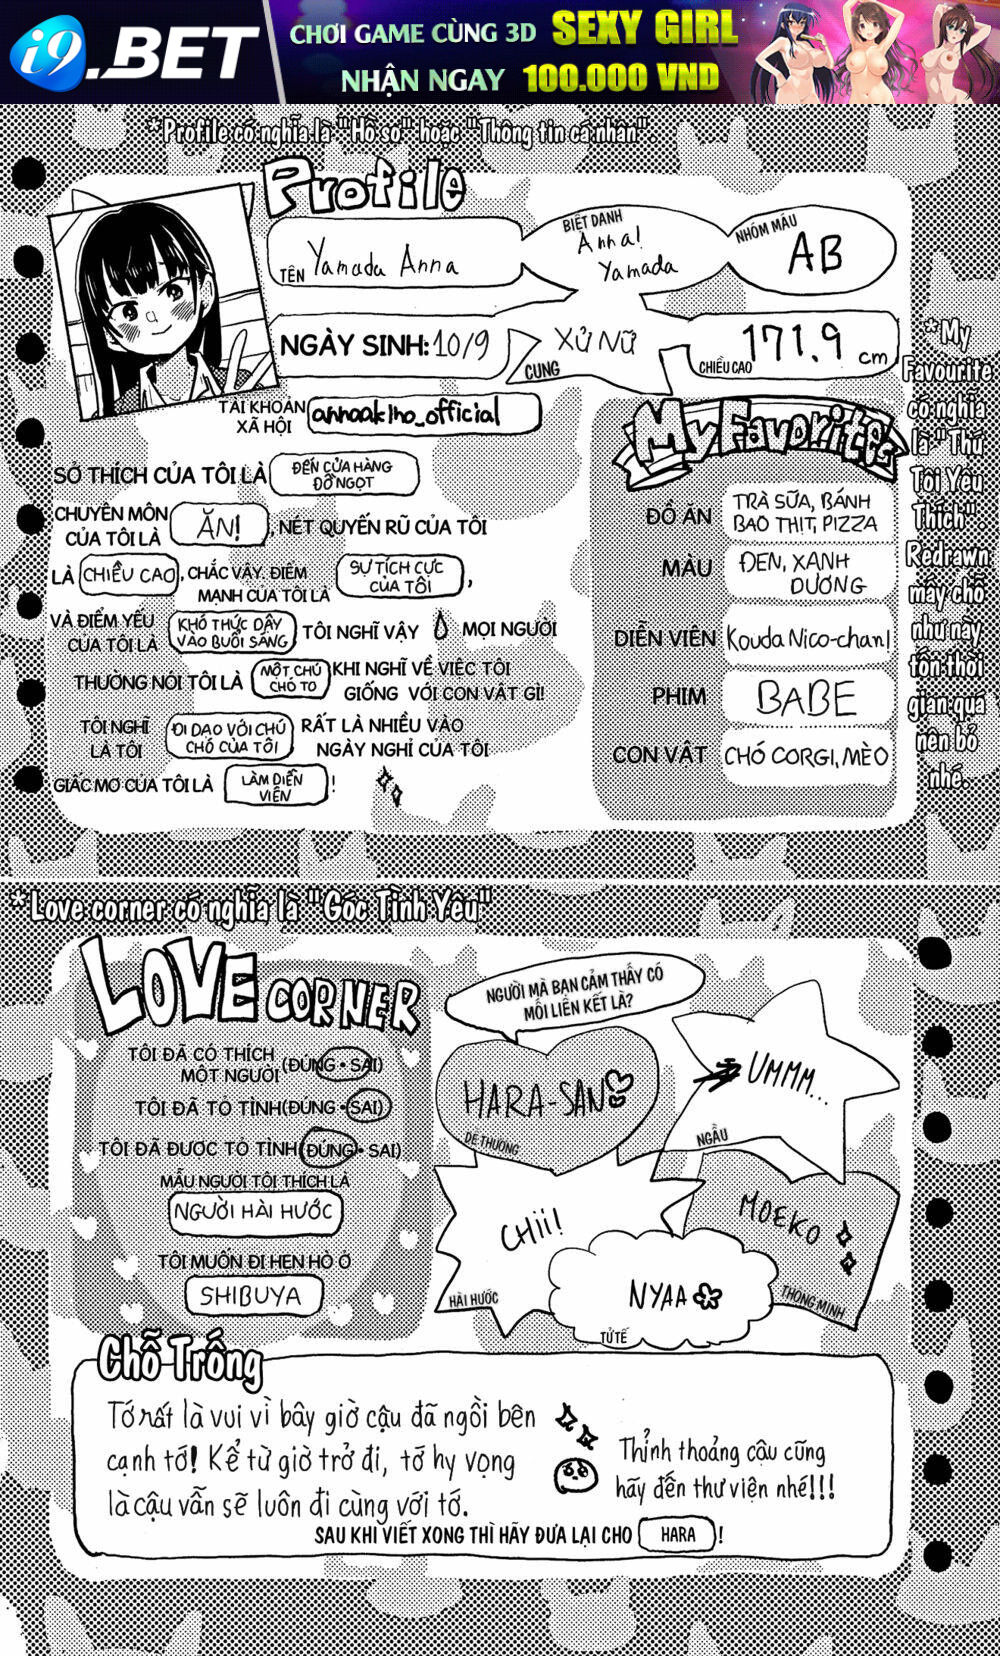 i9.BET
CHƠI GAME CÙNG 3D SEXY GIRL
NHẬN NGAY 100.000 VND
*Profile có nghĩa là "Hồ sơ" hoặc "Thông tin cá nhân".
Profile
TÊN Yamada Anna
BIỆT DANH
Anna!
Yamada
NHÓM MÁU
AB
NGÀY SINH: 10/9
XỬ NỮ
CUNG
171.9 cm
CHIỀU CAO
TÀI KHOẢN
XÃ HỘI
annaakino_official
SỞ THÍCH CỦA TÔI LÀ ĐẾN CỬA HÀNG
ĐỒ NGỌT
CHUYÊN MÔN
CỦA TÔI LÀ ĂN!, NÉT QUYẾN RŨ CỦA TÔI
LÀ CHIỀU CAO, CHẮC VẬY. ĐIỂM
MẠNH CỦA TÔI LÀ SỰ TÍCH CỰC
CỦA TÔI,
VÀ ĐIỂM YẾU
CỦA TÔI LÀ KHÓ THỨC DẬY
VÀO BUỔI SÁNG TÔI NGHĨ VẬY MỌI NGƯỜI
THƯỜNG NÓI TÔI LÀ MỘT CHÚ
CHÓ TO KHI NGHĨ VỀ VIỆC TÔI
GIỐNG VỚI CON VẬT GÌ!
TÔI NGHĨ
LÀ TÔI ĐI DẠO VỚI CHÚ
CHÓ CỦA TÔI RẤT LÀ NHIỀU VÀO
NGÀY NGHỈ CỦA TÔI
GIẤC MƠ CỦA TÔI LÀ LÀM DIỄN
VIÊN!
My Favorites
ĐỒ ĂN TRÀ SỮA, BÁNH
BAO THỊT, PIZZA
MÀU ĐEN, XANH
DƯƠNG
DIỄN VIÊN Kouda Nico-chan!
PHIM BABE
CON VẬT CHÓ CORGI, MÈO
*My
Favourite
có nghĩa
là "Thứ
Tôi Yêu
Thích".
Redrawn
mấy chỗ
như này
tốn thời
gian quá
nên bỏ
nhé.
*Love corner có nghĩa là "Góc Tình Yêu"
LOVE CORNER
TÔI ĐÃ CÓ THÍCH
MỘT NGƯỜI (ĐÚNG • SAI)
TÔI ĐÃ TỎ TÌNH (ĐÚNG • SAI)
TÔI ĐÃ ĐƯỢC TỎ TÌNH (ĐÚNG • SAI)
MẪU NGƯỜI TÔI THÍCH LÀ
NGƯỜI HÀI HƯỚC
TÔI MUỐN ĐI HẸN HÒ Ở
SHIBUYA
NGƯỜI MÀ BẠN CẢM THẤY CÓ
MỐI LIÊN KẾT LÀ?
HARA-SAN
DỄ THƯƠNG
UMMM...
NGẦU
CHII!
HÀI HƯỚC
MOEKO
THÔNG MINH
NYAA
TỬ TẾ
Chỗ Trống
Tớ rất là vui vì bây giờ cậu đã ngồi bên
cạnh tớ! Kể từ giờ trở đi, tớ hy vọng
là cậu vẫn sẽ luôn đi cùng với tớ.
Thỉnh thoảng cậu cũng
hãy đến thư viện nhé!!!
SAU KHI VIẾT XONG THÌ HÃY ĐƯA LẠI CHO HARA!